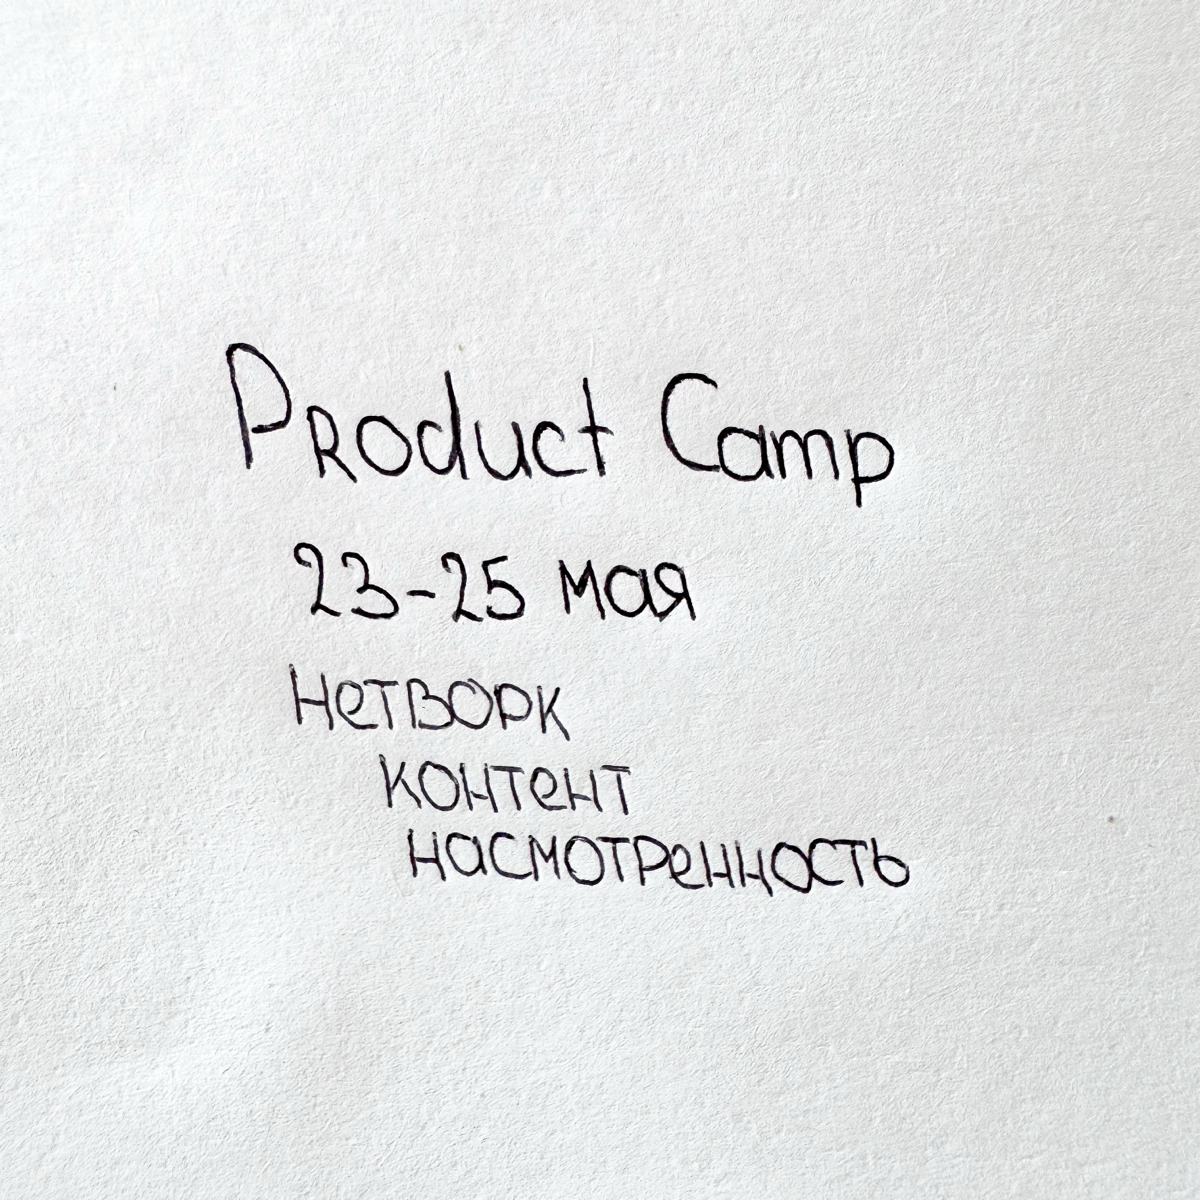 Product Camp
23-25 мая
Нетворк
контент
насмотренность